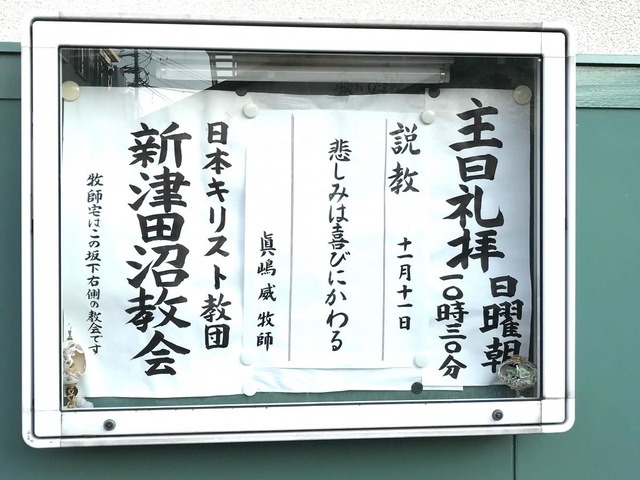 主日礼拝
日曜朝
一〇時三〇分
説教
十一月十一日
悲しみは喜びにかわる
眞嶋 威 牧師
日本キリスト教団
新津田沼教会
牧師宅はこの坂下右側の教会です